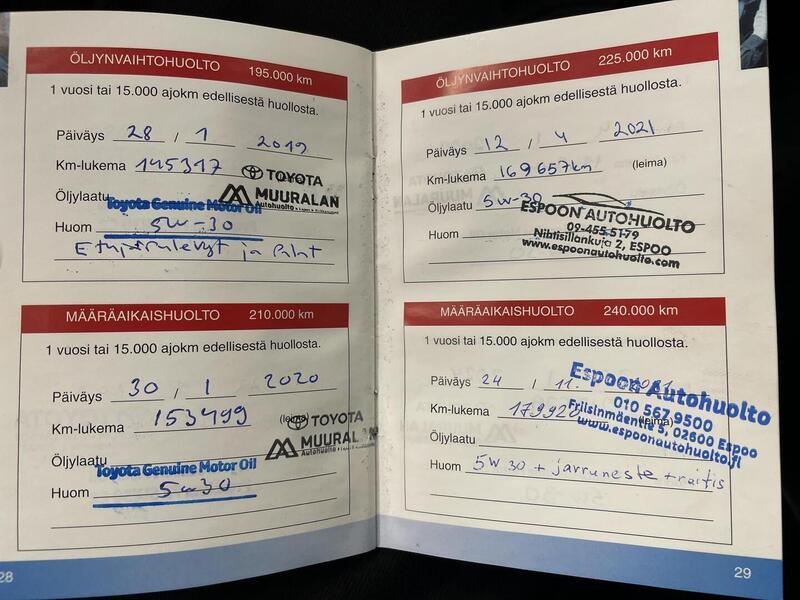 ÖLJYNVAIHTOHUOLTO 195.000 km
1 vuosi tai 15.000 ajokm edellisestä huollosta.
Päiväys 28 / 1 2019
Km-lukema 145317
TOYOTA
MUURALAN
Autohuolto
Öljylaatu
Toyota Genuine Motor Oil
Huom 5W-30
Etujarrulevyt ja Palat
MÄÄRÄAIKAISHUOLTO 210.000 km
1 vuosi tai 15.000 ajokm edellisestä huollosta.
Päiväys 30 / 1 2020
Km-lukema 153499 (leima)
TOYOTA
MUURALAN
Autohuolto
Öljylaatu
Toyota Genuine Motor Oil
Huom 5W30
28
ÖLJYNVAIHTOHUOLTO 225.000 km
1 vuosi tai 15.000 ajokm edellisestä huollosta.
Päiväys 12 / 4 2021
Km-lukema 169657km (leima)
Öljylaatu 5W-30
ESPOON AUTOHUOLTO
09-455 5179
Huom
Nihtisillankuja 2, ESPOO
www.espoonautohuolto.com
MÄÄRÄAIKAISHUOLTO 240.000 km
1 vuosi tai 15.000 ajokm edellisestä huollosta.
Päiväys 24 / 11.
Espoon Autohuolto
010 567 9500
Km-lukema (leima)
Friisinmäentie 5, 02600 Espoo
www.espoonautohuolto.fi
Öljylaatu
Huom 5W30 + jarruneste + raitis
29